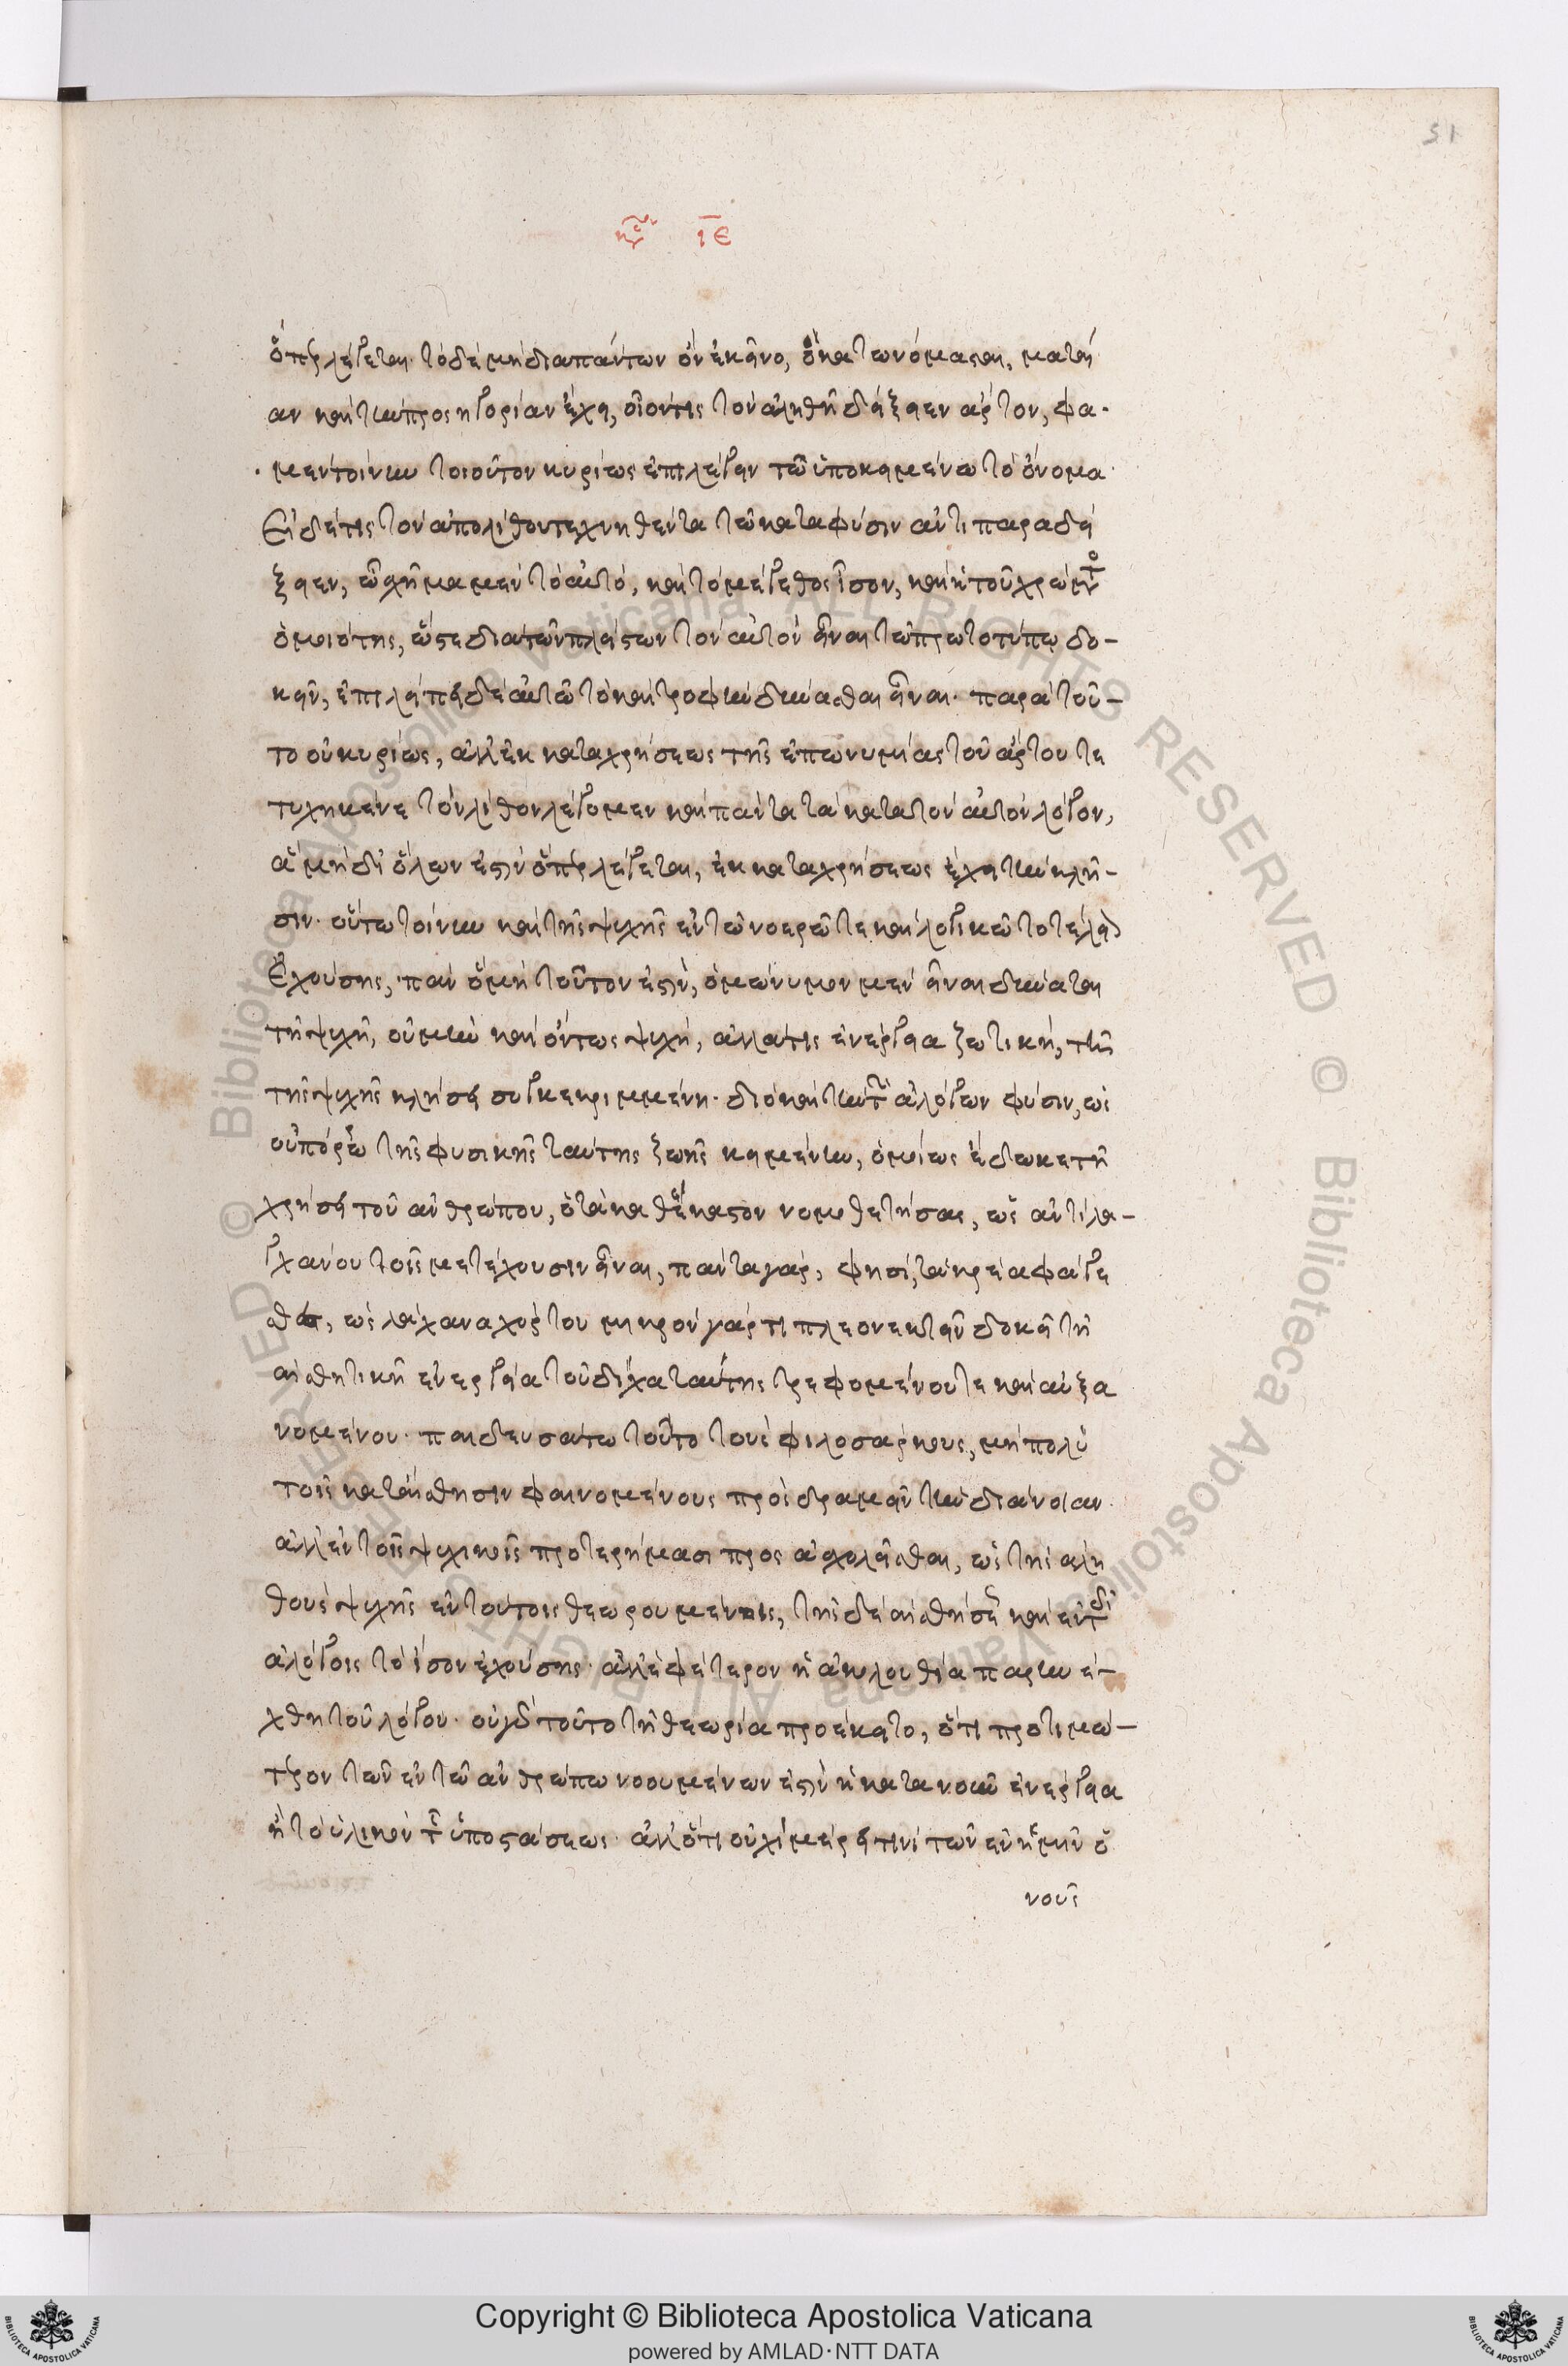 51
κε ιε
ὅπερ λέγεται· τὸ δὲ μὴ διαπάντων ὂν ἐκεῖνο, ὃ κατωνόμασται, ματαί
αν καὶ τὴν προσηγορίαν ἔχει, οἷον τίς τὸν ἀληθῆ δείξειεν ἄρτον, φα-
μὲν τοίνυν τοιοῦτον κυρίως ἐπιλέγειν τῶ ὑποκειμένω τὸ ὄνομα·
Εἰ δέ τις τὸν ἀπολίθου τεχνηθέντα τῶ κατα φύσιν ἀντιπαραδεί
ξειεν, ὧ σχῆμα μὲν τὸ αὐτὸ, καὶ τὸ μέγεθος ἶσον, καὶ ἡ τοῦ χρώματος
ὁμοιότης, ὥστε διατῶν πλείστων τὸν αὐτὸν εἶναι τῶ πρωτοτύπω δο-
κεῖν, ἐπιλείπει δὲ αὐτῶ τὸ καὶ τροφὴν δύνασθαι εἶναι· παρὰ τοῦ-
το οὐ κυρίως, ἀλλ' ἐκ καταχρήσεως τῆς ἐπωνυμίας τοῦ ἄρτου τε
τυχηκέναι τὸν λίθον λέγομεν καὶ πάντα τὰ κατα τὸν αὐτὸν λόγον,
ἃ μὴ δι' ὅλων ἐστὶν ὅπερ λέγεται, ἐκ καταχρήσεως ἔχει τὴν κλῆ-
σιν· οὕτω τοίνυν καὶ τῆς ψυχῆς ἐν τῶ νοερῶ τε καὶ λογικῶ τὸ τέλειον
ἐχούσης, πᾶν ὃ μὴ τοῦτον ἐστὶν, ὁμώνυμον μὲν εἶναι δύναται
τῆ ψυχῆ, οὐ μὴν καὶ ὄντως ψυχὴ, ἀλλά τις ἐνέργεια ζωτικὴ, τῆ
τῆς ψυχῆς κλήσει συγκεκριμμένη· διὸ καὶ τὴν τῶν ἀλόγων φύσιν, ὡς
οὐ πόρρω τῆς φυσικῆς ταύτης ζωῆς κειμένην, ὁμοίως ἔδωκε τῆ
χρήσει τοῦ ἀνθρώπου, ὁ τὰ καθ' ἕκαστον νομοθετήσας, ὡς ἀντὶ λα-
χάνου τοῖς μετέχουσιν εἶναι, πάντα γάρ, φησί, τὰ κρέα φάγε
σθε, ὡς λάχανα χόρτου μικρὸν γάρ τι πλεονεκτεῖν δοκεῖ τῆ
αἰσθητικῆ ἐνεργεία τοῦ δίχα ταύτης τρεφομένου τε καὶ αὐξα
νομένου· παιδευσάτω τοῦτο τοὺς φιλοσάρκους, μὴ πολὺ
τοῖς κατ' αἴσθησιν φαινομένους προσδραμεῖν τὴν διάνοιαν·
ἀλλ' ἐν τοῖς ψυχικοῖς προτερήμασι προσασχολεῖσθαι, ὡς τῆς ἀλη
θοῦς ψυχῆς ἐν τούτοις θεωρουμένης, τῆς δὲ αἰσθήσεως καὶ ἐν τοῖς
ἀλόγοις τὸ ἴσον ἐχούσης· ἀλλ' ἐφ' ἕτερον ἡ ἀκολουθία παρηνέ-
χθη τοῦ λόγου· οὐ γὰρ τοῦτο τῆ θεωρία προέκειτο, ὅτι προτιμώ-
τερον τῶν ἐν τῶ ἀνθρώπω νοουμένων ἐστὶν ἡ κατα νοῦν ἐνέργεια
ἢ τὸ ὑλικὸν τῆς ὑποστάσεως· ἀλλ' ὅτι οὐχὶ μέρει τινὶ τῶν ἐν ἡμῖν ὁ
νοῦς
Copyright © Biblioteca Apostolica Vaticana
powered by AMLAD·NTT DATA